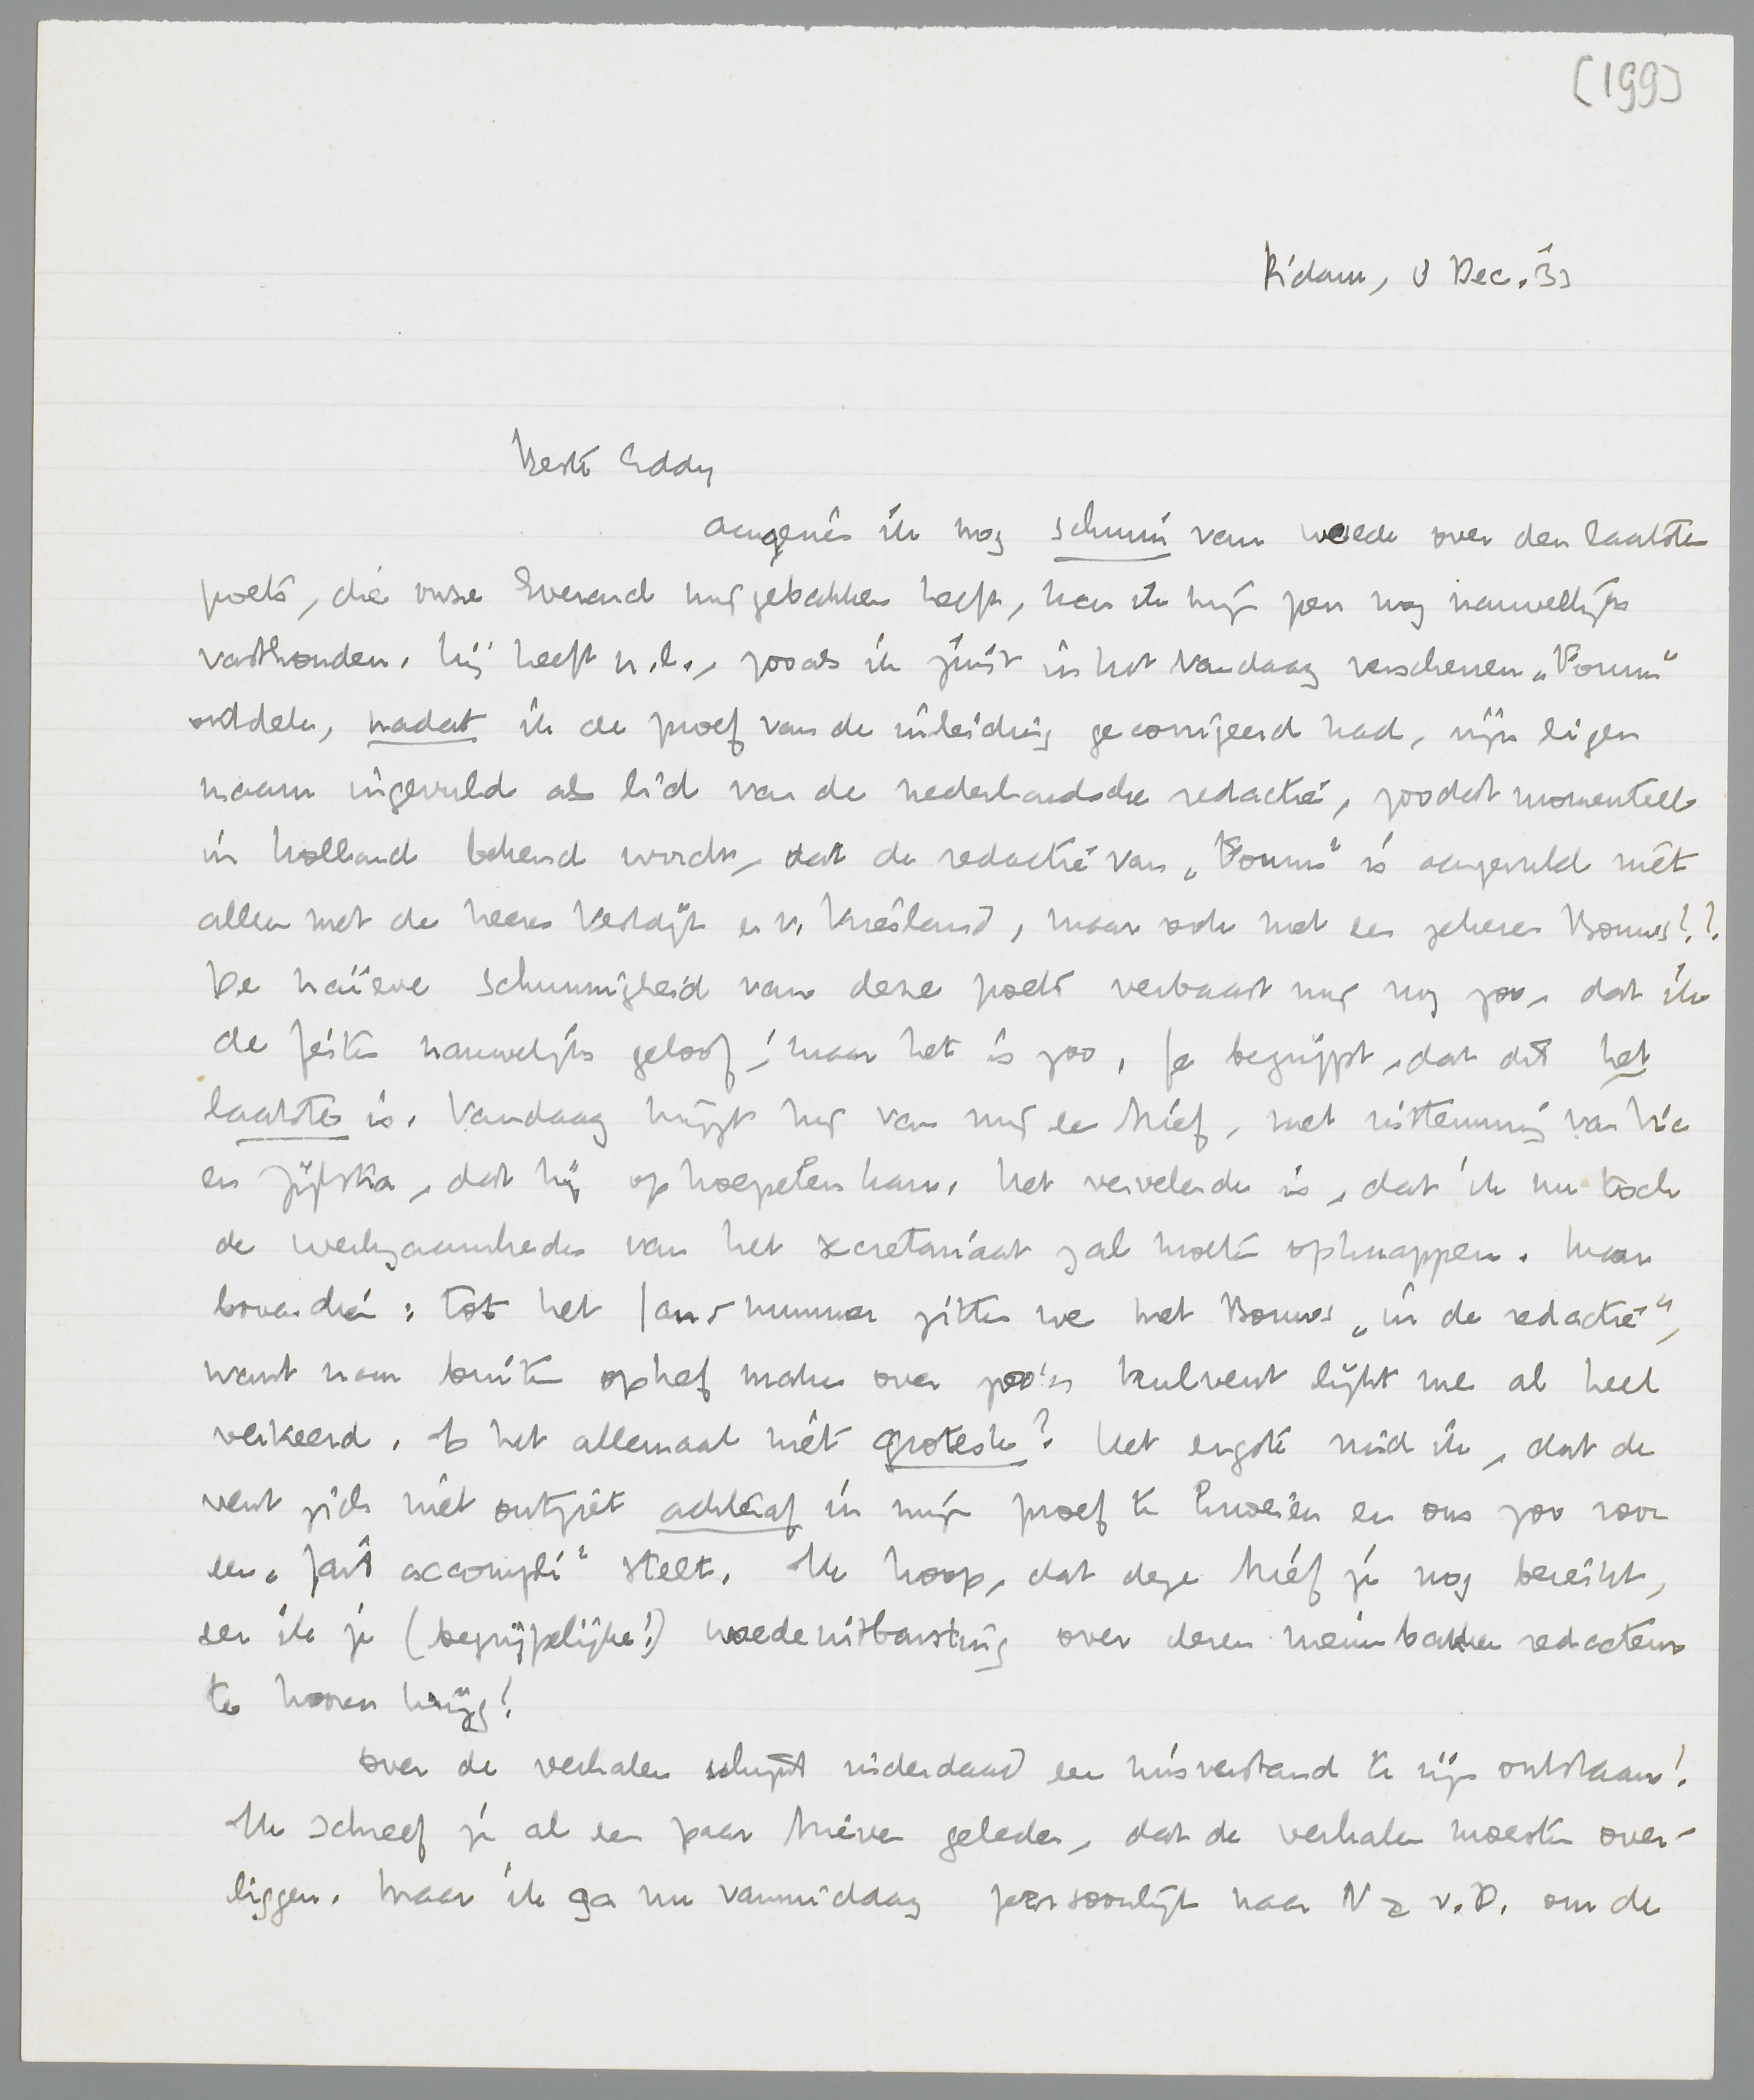 [199]
R'dam, 8 Dec. '33
Beste Eddy
aangezien ik nog schuim van woede over den laatsten
poets, die onze Everard mij gebakken heeft, kan ik mijn pen nog nauwelijks
vasthouden. Hij heeft n.l., zooals ik juist in het vandaag verschenen „Forum"
ontdek, nadat ik de proef van de inleiding gecorrigeerd had, zijn eigen
naam ingevuld als lid van de nederlandsche redactie, zoodat momenteel
in Holland bekend wordt, dat de redactie van „Forum" is aangevuld niet
alleen met de heeren Vestdijk en v. Vriesland, maar ook met een zekeren Bouws!?
De naïeve schunnigheid van deze poets verbaast mij nog zoo, dat ik
de feiten nauwelijks geloof; maar het is zoo. Je begrijpt, dat dit het
laatste is. Vandaag krijgt hij van mij een brief, met instemming van Vic
en Zijlstra, dat hij ophoepelen kan. Het vervelende is, dat ik nu toch
de werkzaamheden van het secretariaat zal moeten opknappen. Maar
bovendien: tot het Jan-nummer zitten we met Bouws „in de redactie",
want naar buiten ophef maken over zoo'n kulvent lijkt me al heel
verkeerd. Is het allemaal niet grotesk? Het ergste vind ik, dat de
vent zich niet ontziet achteraf in mijn proef te knoeien en ons zoo voor
een „fait accompli" stelt. Ik hoop, dat deze brief je nog bereikt,
eer ik je (begrijpelijke!) woedeuitbarsting over dezen nieuwbakken redacteur
te hooren krijg!
Over de verhalen schijnt inderdaad een misverstand te zijn ontstaan!
Ik schreef je al een paar brieven geleden, dat de verhalen moesten over-
liggen. Maar ik ga nu vanmiddag persoonlijk naar N & v. D. om de